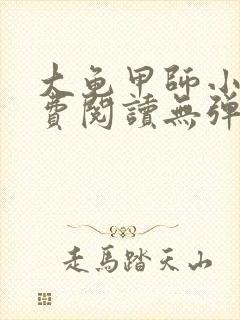 大龜甲師小
費閱讀無彈
走馬踏天山